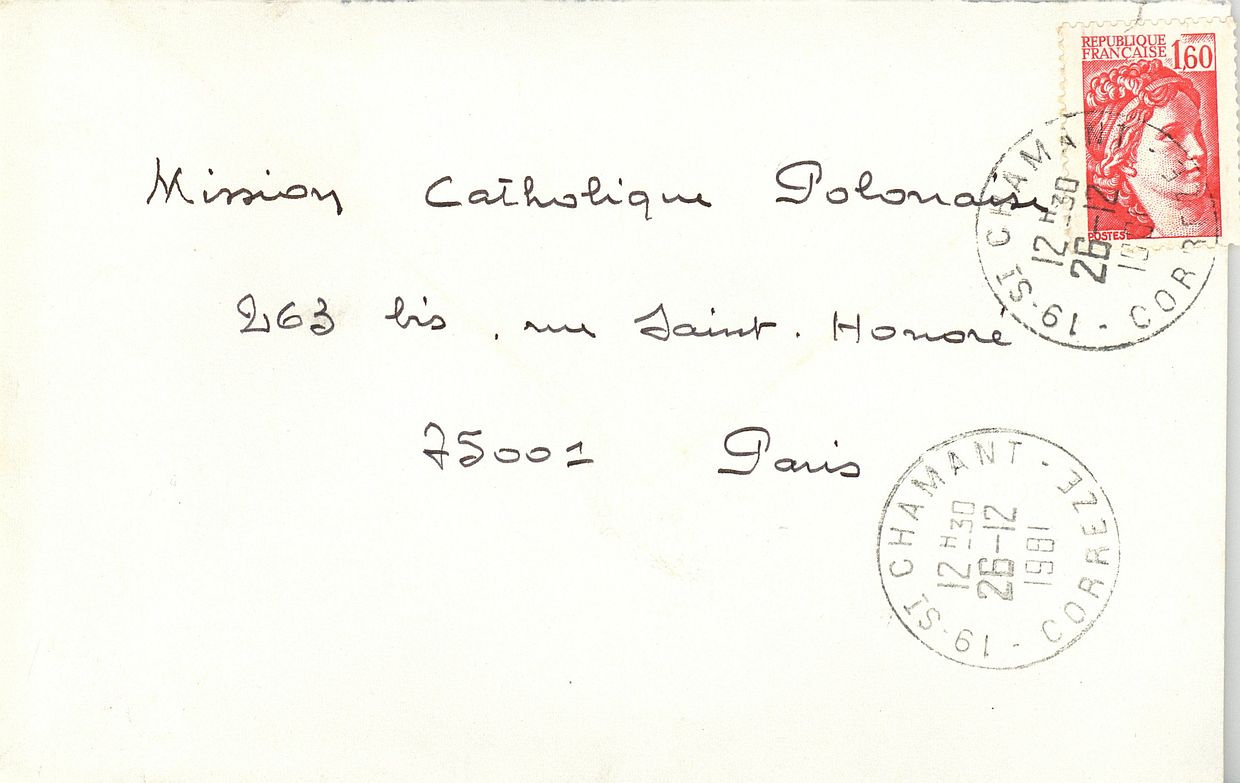 REPUBLIQUE
FRANÇAISE 1,60
POSTES
19-ST CHAMANT - CORREZE
12 H30
26-12
1981
Mission Catholique Polonaise
263 bis, rue Saint-Honoré
75001 Paris
19-ST CHAMANT - CORREZE
12 H30
26-12
1981